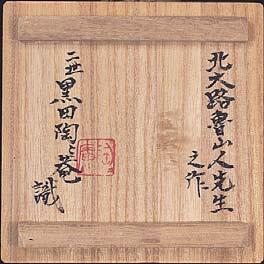 北大路魯山人先生
之作
二世黒田陶々菴
識